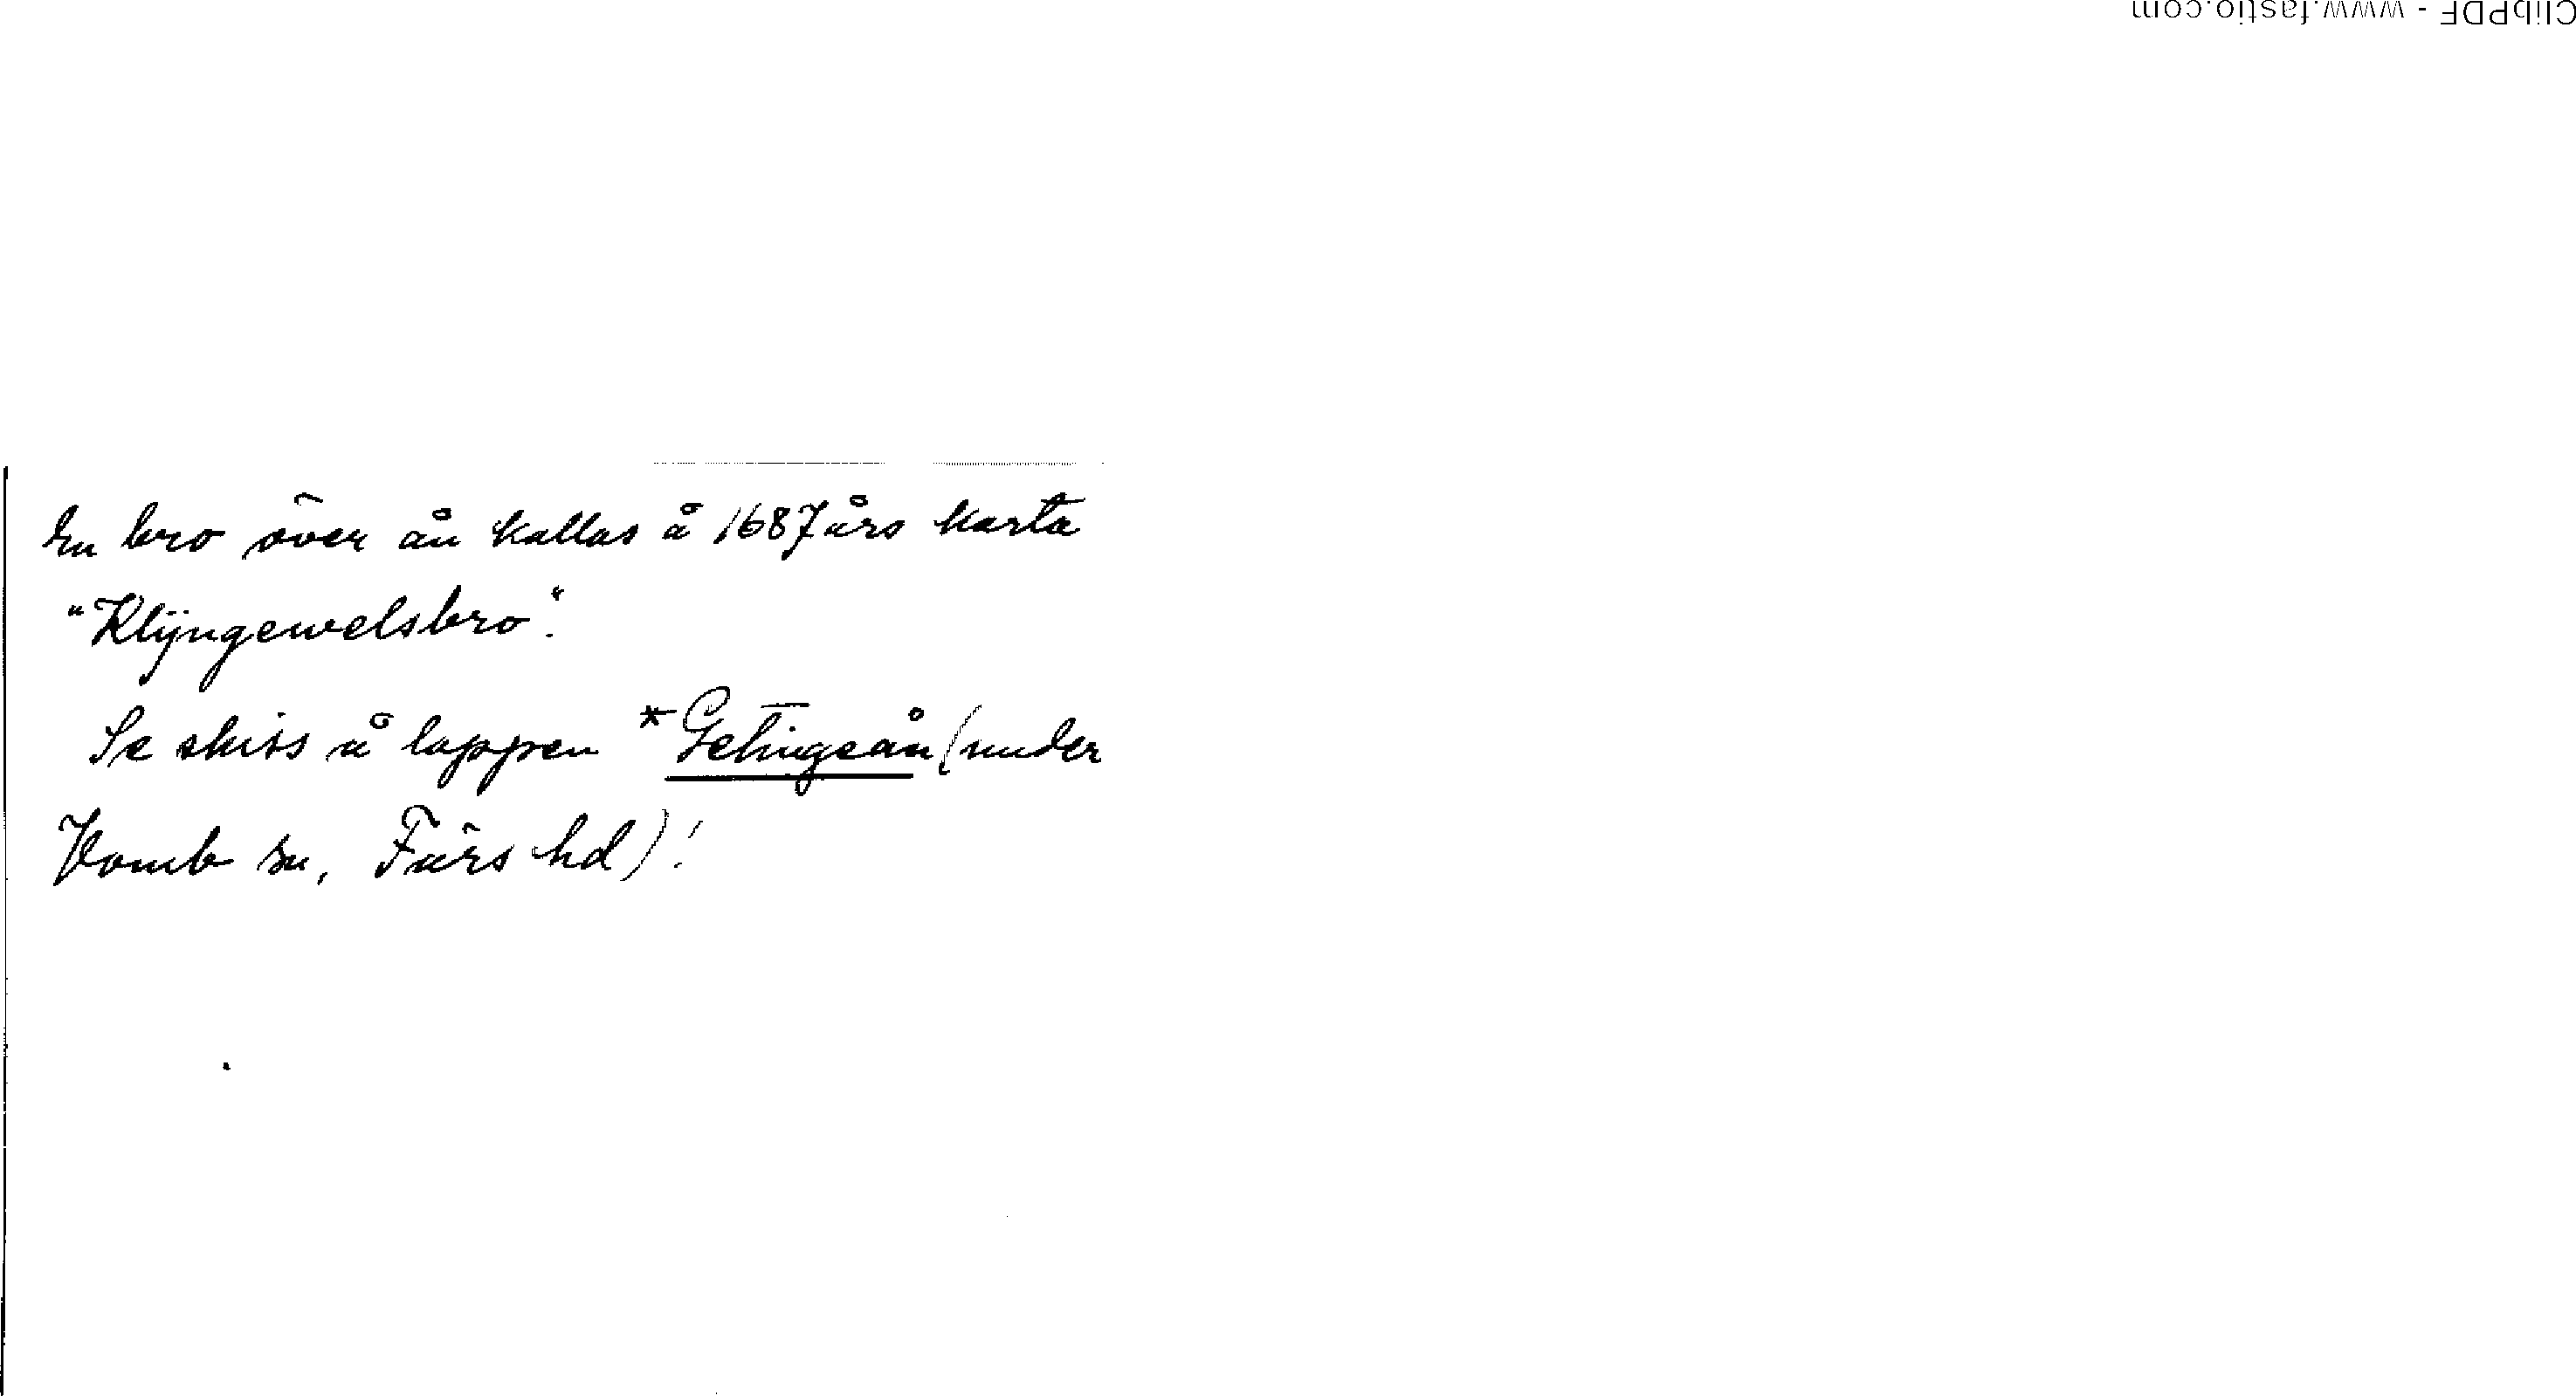 En bro över ån kallas å 1687 års karta
"Klÿngewelsbro".
Se skiss å lappen *Getingeån (under
Vomb sn, Färs hd)!
ClibPDF - www.fastio.com